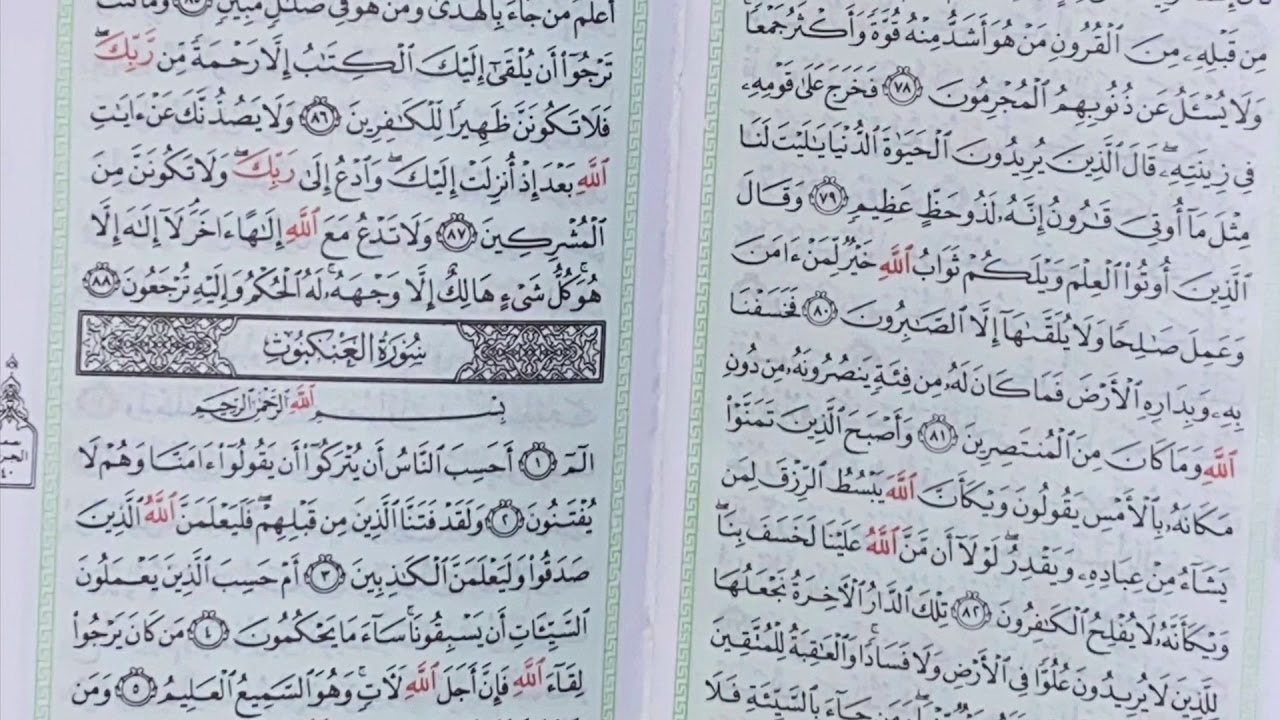 مِن قَبْلِهِۦ مِنَ ٱلْقُرُونِ مَنْ هُوَ أَشَدُّ مِنْهُ قُوَّةً وَأَكْثَرُ جَمْعًا
وَلَا يُسْـَٔلُ عَن ذُنُوبِهِمُ ٱلْمُجْرِمُونَ ٧٨ فَخَرَجَ عَلَىٰ قَوْمِهِۦ
فِى زِينَتِهِۦۖ قَالَ ٱلَّذِينَ يُرِيدُونَ ٱلْحَيَوٰةَ ٱلدُّنْيَا يَـٰلَيْتَ لَنَا
مِثْلَ مَآ أُوتِىَ قَـٰرُونُ إِنَّهُۥ لَذُو حَظٍّ عَظِيمٍ ٧٩ وَقَالَ
ٱلَّذِينَ أُوتُوا۟ ٱلْعِلْمَ وَيْلَكُمْ ثَوَابُ ٱللَّهِ خَيْرٌ لِّمَنْ ءَامَنَ
وَعَمِلَ صَـٰلِحًا وَلَا يُلَقَّىٰهَآ إِلَّا ٱلصَّـٰبِرُونَ ٨٠ فَخَسَفْنَا
بِهِۦ وَبِدَارِهِ ٱلْأَرْضَ فَمَا كَانَ لَهُۥ مِن فِئَةٍ يَنصُرُونَهُۥ مِن دُونِ
ٱللَّهِ وَمَا كَانَ مِنَ ٱلْمُنتَصِرِينَ ٨١ وَأَصْبَحَ ٱلَّذِينَ تَمَنَّوْا۟
مَكَانَهُۥ بِٱلْأَمْسِ يَقُولُونَ وَيْكَأَنَّ ٱللَّهَ يَبْسُطُ ٱلرِّزْقَ لِمَن
يَشَآءُ مِنْ عِبَادِهِۦ وَيَقْدِرُۖ لَوْلَآ أَن مَّنَّ ٱللَّهُ عَلَيْنَا لَخَسَفَ بِنَاۖ
وَيْكَأَنَّهُۥ لَا يُفْلِحُ ٱلْكَـٰفِرُونَ ٨٢ تِلْكَ ٱلدَّارُ ٱلْـَٔاخِرَةُ نَجْعَلُهَا
لِلَّذِينَ لَا يُرِيدُونَ عُلُوًّا فِى ٱلْأَرْضِ وَلَا فَسَادًاۚ وَٱلْعَـٰقِبَةُ لِلْمُتَّقِينَ
مَن جَآءَ بِٱلْحَسَنَةِ فَلَهُۥ خَيْرٌ مِّنْهَاۖ وَمَن جَآءَ بِٱلسَّيِّئَةِ فَلَا
أَعْلَمُ مَن جَآءَ بِٱلْهُدَىٰ وَمَنْ هُوَ فِى ضَلَـٰلٍ مُّبِينٍ ٨٥ وَمَا كُنتَ
تَرْجُوٓا۟ أَن يُلْقَىٰٓ إِلَيْكَ ٱلْكِتَـٰبُ إِلَّا رَحْمَةً مِّن رَّبِّكَۖ
فَلَا تَكُونَنَّ ظَهِيرًا لِّلْكَـٰفِرِينَ ٨٦ وَلَا يَصُدُّنَّكَ عَنْ ءَايَـٰتِ
ٱللَّهِ بَعْدَ إِذْ أُنزِلَتْ إِلَيْكَۖ وَٱدْعُ إِلَىٰ رَبِّكَۖ وَلَا تَكُونَنَّ مِنَ
ٱلْمُشْرِكِينَ ٨٧ وَلَا تَدْعُ مَعَ ٱللَّهِ إِلَـٰهًا ءَاخَرَۘ لَآ إِلَـٰهَ إِلَّا
هُوَۚ كُلُّ شَىْءٍ هَالِكٌ إِلَّا وَجْهَهُۥۚ لَهُ ٱلْحُكْمُ وَإِلَيْهِ تُرْجَعُونَ ٨٨
سُورَةُ العَنكبُوتِ
بِسْمِ ٱللَّهِ ٱلرَّحْمَـٰنِ ٱلرَّحِيمِ
الٓمٓ ١ أَحَسِبَ ٱلنَّاسُ أَن يُتْرَكُوٓا۟ أَن يَقُولُوٓا۟ ءَامَنَّا وَهُمْ لَا
يُفْتَنُونَ ٢ وَلَقَدْ فَتَنَّا ٱلَّذِينَ مِن قَبْلِهِمْۖ فَلَيَعْلَمَنَّ ٱللَّهُ ٱلَّذِينَ
صَدَقُوا۟ وَلَيَعْلَمَنَّ ٱلْكَـٰذِبِينَ ٣ أَمْ حَسِبَ ٱلَّذِينَ يَعْمَلُونَ
ٱلسَّيِّـَٔاتِ أَن يَسْبِقُونَاۚ سَآءَ مَا يَحْكُمُونَ ٤ مَن كَانَ يَرْجُوا۟
لِقَآءَ ٱللَّهِ فَإِنَّ أَجَلَ ٱللَّهِ لَـَٔاتٍۚ وَهُوَ ٱلسَّمِيعُ ٱلْعَلِيمُ ٥ وَمَن